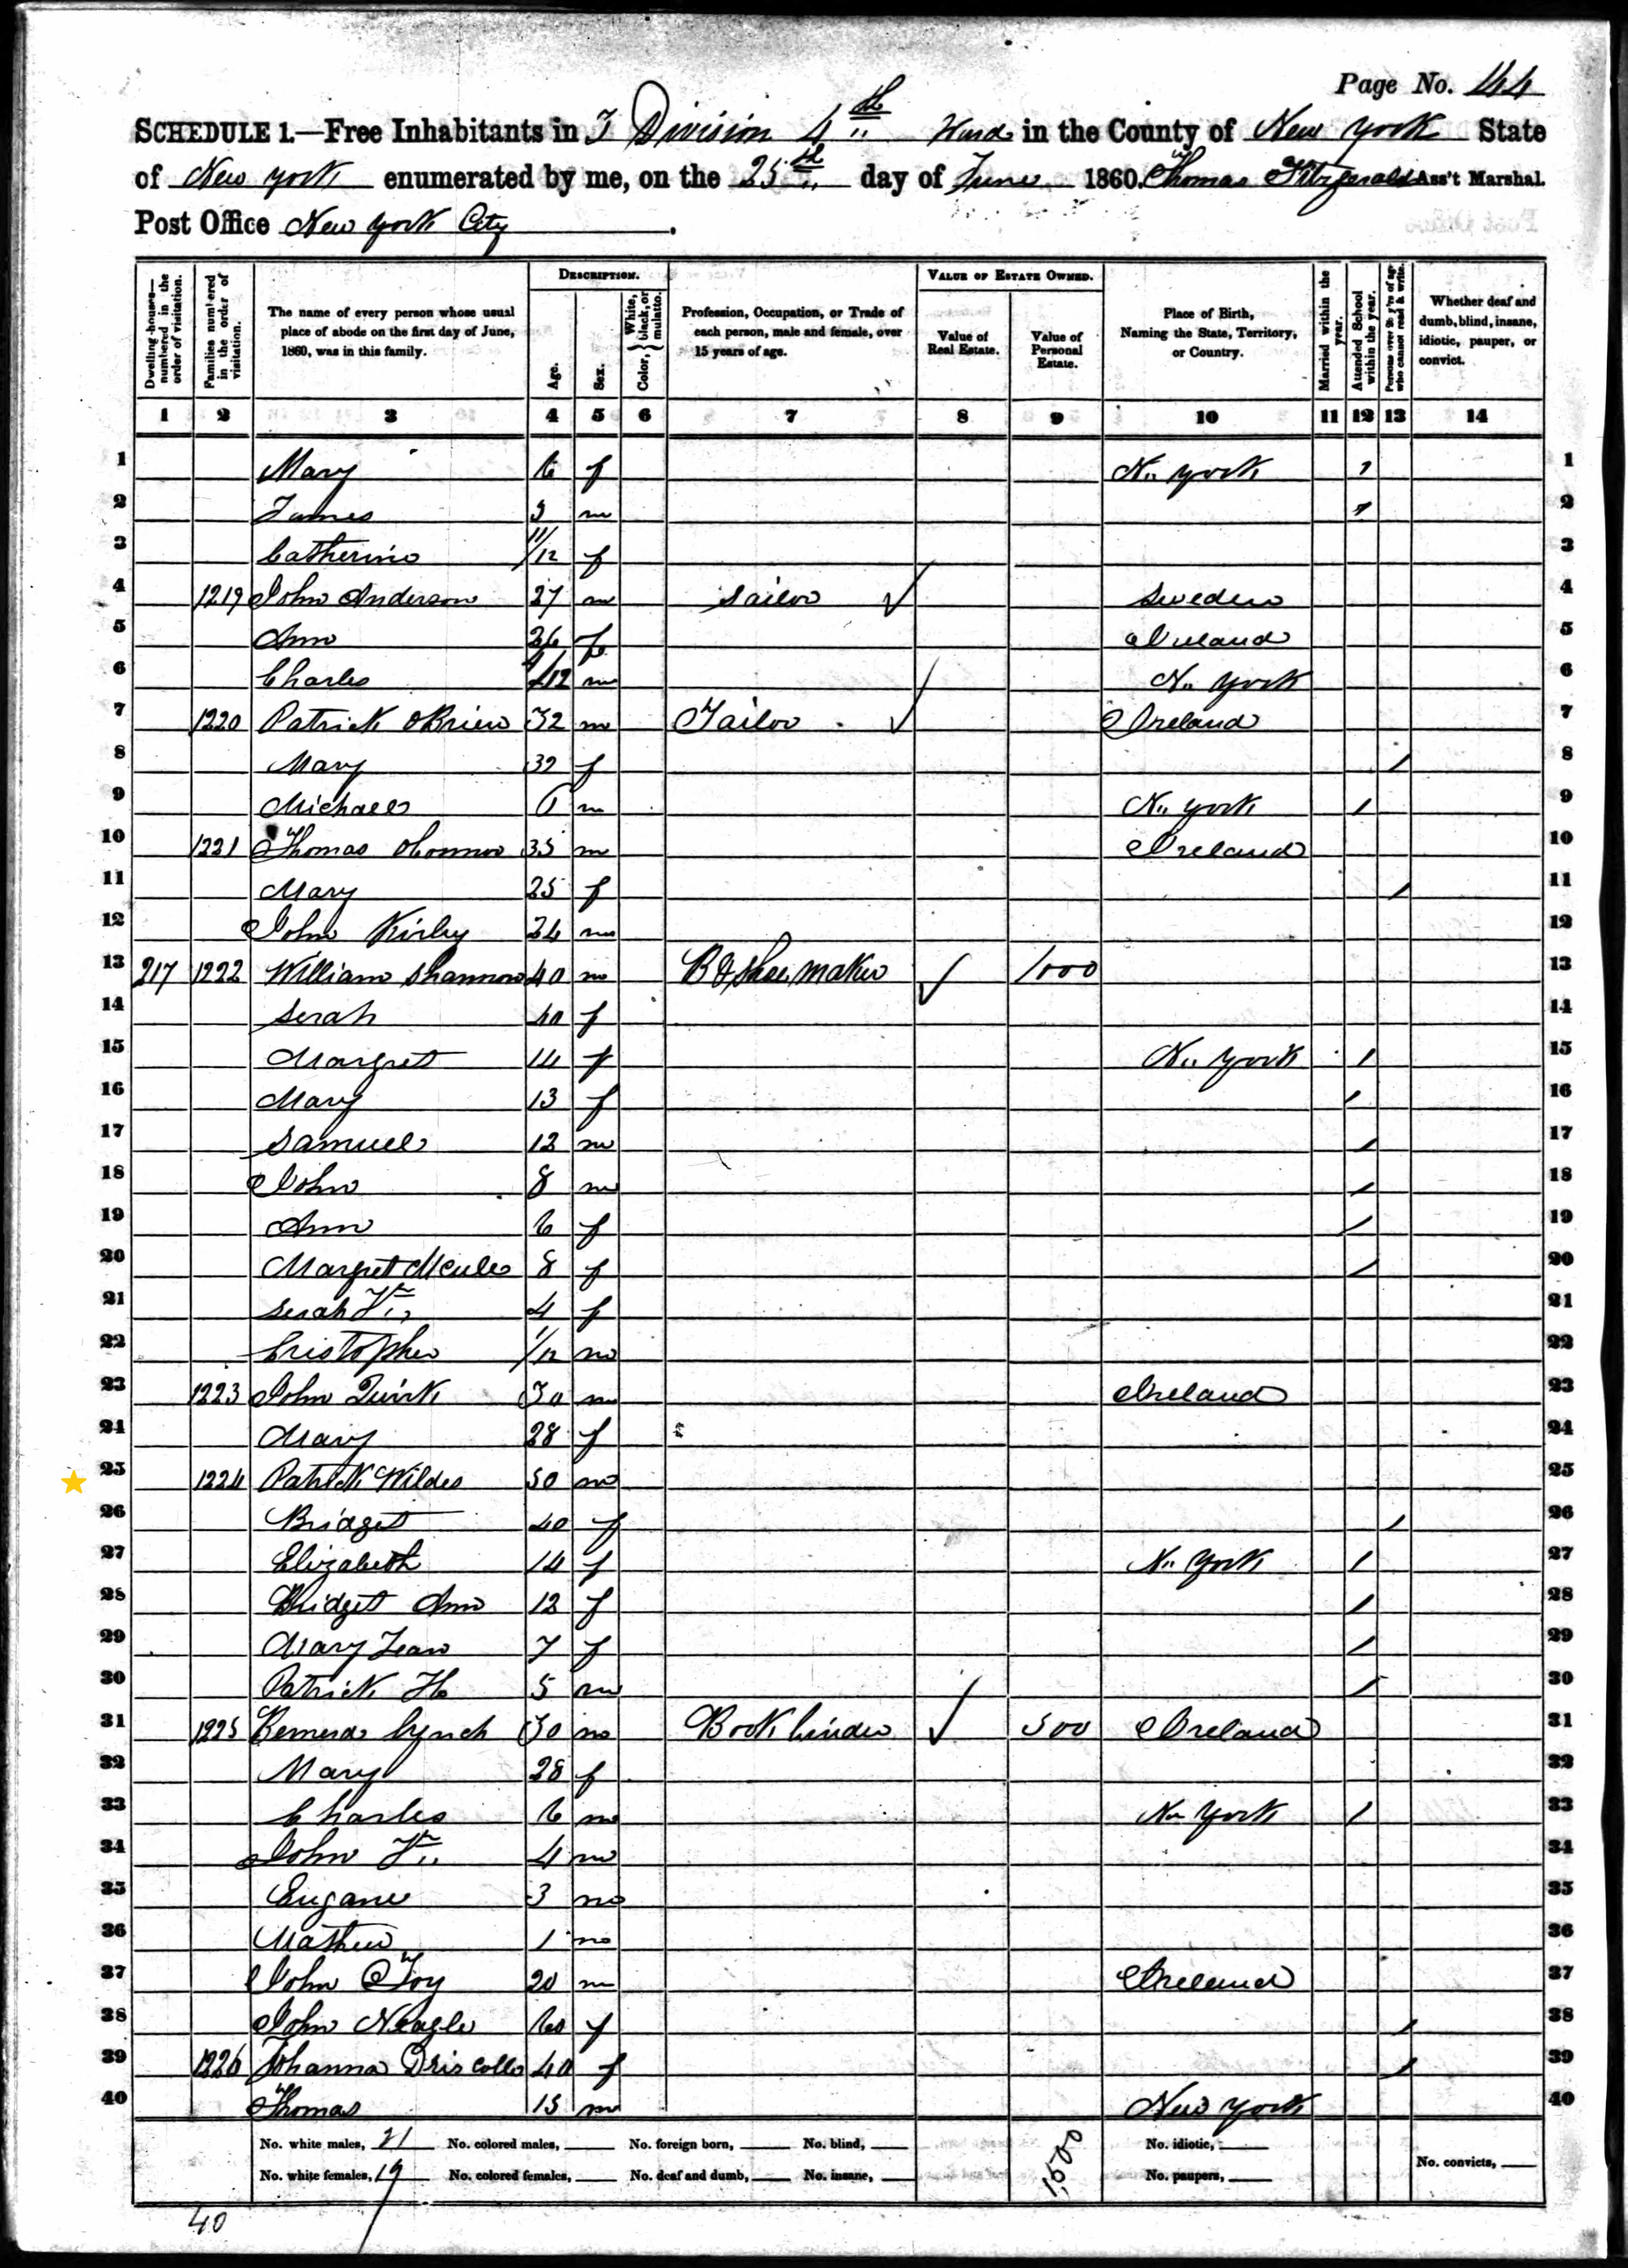 Page No. 44
SCHEDULE 1.—Free Inhabitants in 3 Division 4th Ward in the County of New York State
of New York enumerated by me, on the 25th day of June 1860. Thomas Fitzgerald Ass't Marshal.
Post Office New York City
DESCRIPTION. VALUE OF ESTATE OWNED.
Dwelling-houses—numbered in the order of visitation. Families numbered in the order of visitation. The name of every person whose usual place of abode on the first day of June, 1860, was in this family. Age. Sex. Color, {White, black, or mulatto. Profession, Occupation, or Trade of each person, male and female, over 15 years of age. Value of Real Estate. Value of Personal Estate. Place of Birth, Naming the State, Territory, or Country. Married within the year. Attended School within the year. Persons over 20 y'rs of age who cannot read & write. Whether deaf and dumb, blind, insane, idiotic, pauper, or convict.
1 2 3 4 5 6 7 8 9 10 11 12 13 14
1 Mary 6 f N. York 1 1
2 James 3 m 1 2
3 Catherine 11/12 f 3
4 1219 John Anderson 27 m Sailor Sweden 4
5 Ann 26 f Ireland 5
6 Charles /12 m N. York 6
7 1220 Patrick OBrien 32 m Tailor Ireland 7
8 Mary 32 f / 8
9 Michael 6 m N. York / 9
10 1221 Thomas OConnor 35 m Ireland 10
11 Mary 25 f / 11
12 John Kirby 24 m 12
13 217 1222 William Shannon 40 m B & Shoe Maker 1000 13
14 Serah 40 f 14
15 Margret 14 f N. York / 15
16 Mary 13 f / 16
17 Samuel 12 m / 17
18 John 8 m / 18
19 Ann 6 f / 19
20 Margret 8 f / 20
21 Serah 4 f 21
22 Cristopher 1/12 m 22
23 1223 John Quirk 30 m Ireland 23
24 Mary 28 f 24
25 1224 Patrick Wildes 50 m 25
26 Bridget 40 f / 26
27 Elizabeth 14 f N. York / 27
28 Bridget Ann 12 f / 28
29 Mary Jean 7 f / 29
30 Patrick H 5 m / 30
31 1225 Bernerd Lynch 30 m Book binder 500 Ireland 31
32 Mary 28 f 32
33 Charles 6 m N. York / 33
34 John 4 m 34
35 Eugane 3 m 35
36 Mathew 1 m 36
37 John Foy 20 m Ireland 37
38 John Neagle 60 f / 38
39 1226 Johanna Driscoll 40 f / 39
40 Thomas 15 m New York 40
No. white males, 21 No. colored males, No. foreign born, No. blind, 1,500 No. idiotic,
No. white females, 19 No. colored females, No. deaf and dumb, No. insane, No. paupers, No. convicts,
40